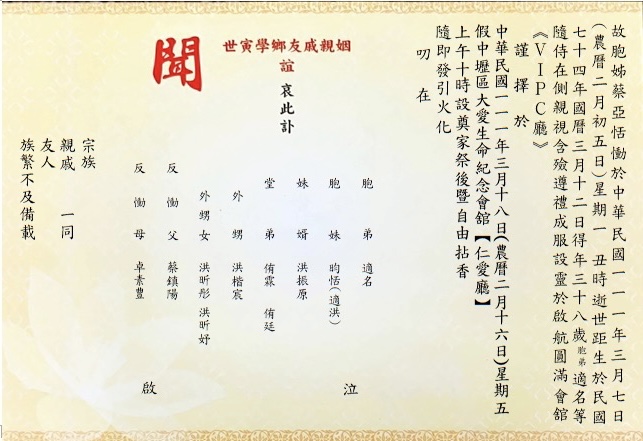 故胞姊蔡亞恬慟於中華民國一一一年三月七日
(農曆二月初五日)星期一 丑時逝世距生於民國
七十四年國曆三月十二日得年三十八歲胞弟適名等
隨侍在側親視含殮遵禮成服設靈於啟航圓滿會館
《VIPC廳》
謹擇於
中華民國一一一年三月十八日(農曆二月十六日)星期五
假中壢區大愛生命紀念會館【仁愛廳】
上午十時設奠家祭後暨自由拈香
隨即發引火化
叨在
世寅學鄉友戚親姻
誼
哀此訃
聞
胞弟 適名
胞妹 昀恬(適洪)
妹婿 洪振原
堂弟 侑霖 侑廷
外甥 洪楷宸
外甥女 洪昕彤 洪昕妤
反慟父 蔡鎮陽
反慟母 卓素豐
泣
啟
宗族
親戚 一同
友人
族繁不及備載